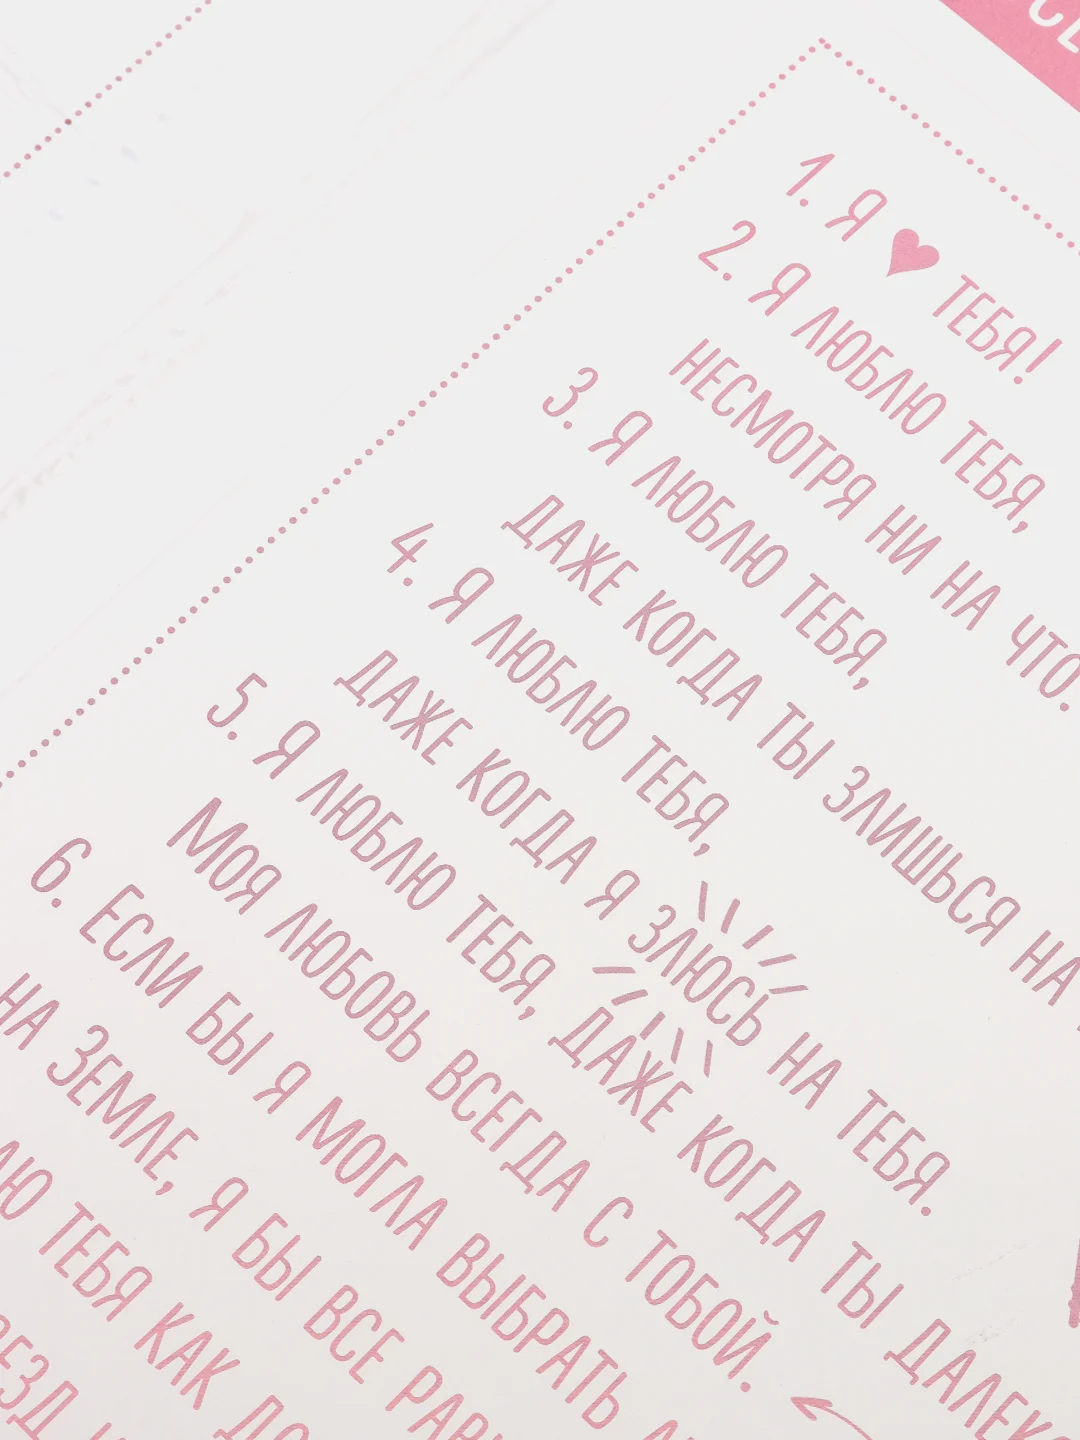 1. Я ♥ ТЕБЯ!
2. Я ЛЮБЛЮ ТЕБЯ,
НЕСМОТРЯ НИ НА ЧТО.
3. Я ЛЮБЛЮ ТЕБЯ,
ДАЖЕ КОГДА ТЫ ЗЛИШЬСЯ НА
4. Я ЛЮБЛЮ ТЕБЯ,
ДАЖЕ КОГДА Я ЗЛЮСЬ НА ТЕБЯ.
5. Я ЛЮБЛЮ ТЕБЯ, ДАЖЕ КОГДА ТЫ ДАЛЕК
МОЯ ЛЮБОВЬ ВСЕГДА С ТОБОЙ.
6. ЕСЛИ БЫ Я МОГЛА ВЫБРАТЬ
НА ЗЕМЛЕ, Я БЫ ВСЕ РАВ
ТЕБЯ КАК ДО